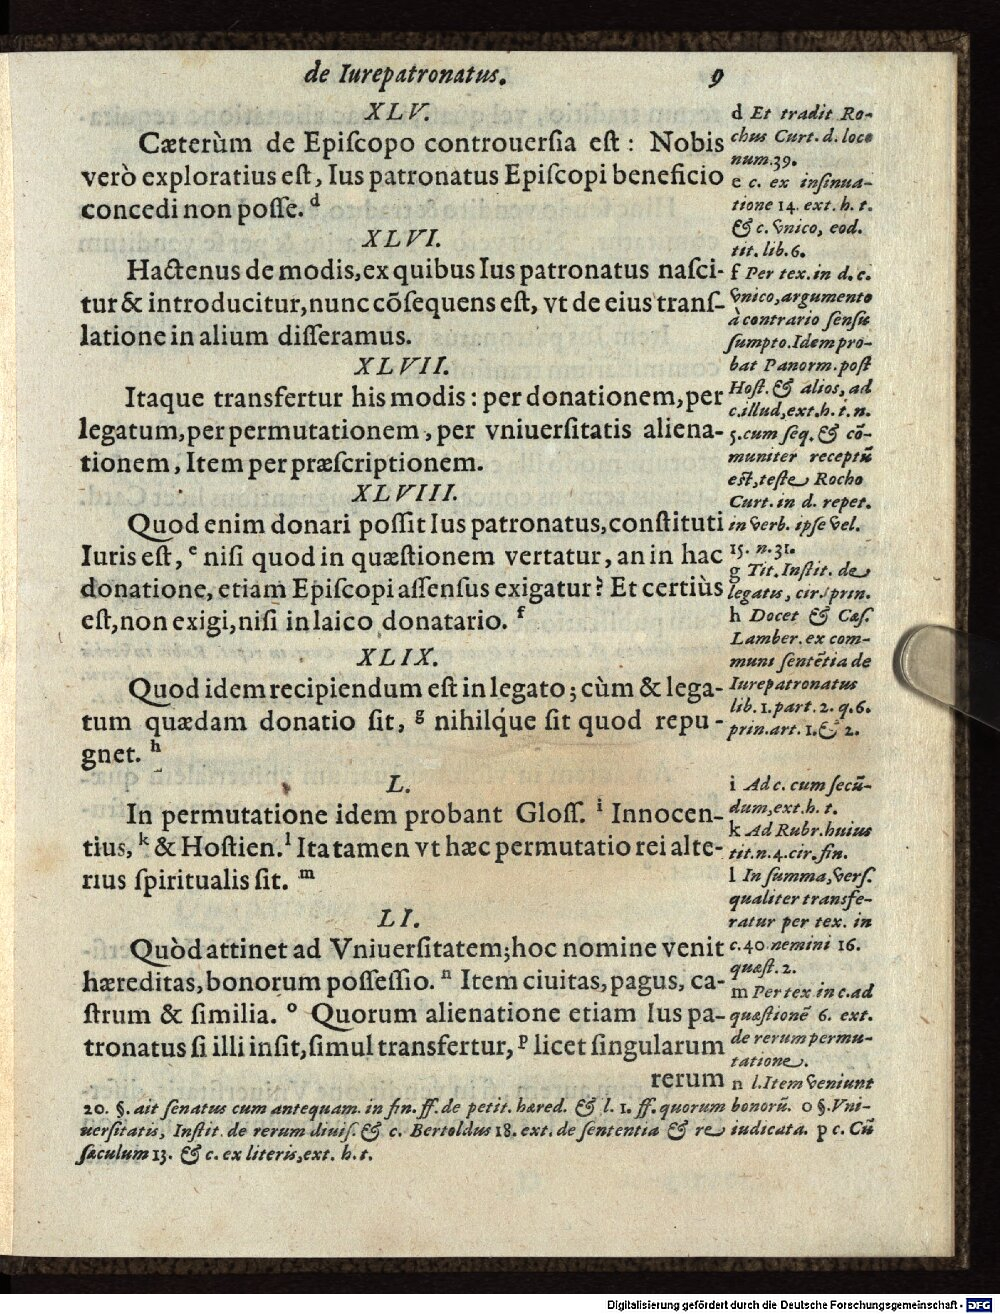 de Iurepatronatus. 9
XLV.
Cæterùm de Epiſcopo controuerſia eſt : Nobis
verò exploratius eſt, Ius patronatus Epiſcopi beneficio
concedi non poſſe. d
XLVI.
Hactenus de modis, ex quibus Ius patronatus naſci-
tur & introducitur, nunc cõſequens eſt, vt de eius tranſ-
latione in alium diſſeramus.
XLVII.
Itaque transfertur his modis : per donationem, per
legatum, per permutationem, per vniuerſitatis aliena-
tionem, Item per præſcriptionem.
XLVIII.
Quod enim donari poſſit Ius patronatus, conſtituti
Iuris eſt, e niſi quod in quæſtionem vertatur, an in hac
donatione, etiam Epiſcopi aſſenſus exigatur? Et certiùs
eſt, non exigi, niſi in laico donatario. f
XLIX.
Quod idem recipiendum eſt in legato; cùm & lega-
tum quædam donatio ſit, g nihilq́ue ſit quod repu-
gnet. h
L.
In permutatione idem probant Gloſſ. i Innocen-
tius, k & Hoſtien. l Ita tamen vt hæc permutatio rei alte-
rius ſpiritualis ſit. m
LI.
Quòd attinet ad Vniuerſitatem; hoc nomine venit
hæreditas, bonorum poſſeſſio. n Item ciuitas, pagus, ca-
ſtrum & ſimilia. o Quorum alienatione etiam Ius pa-
tronatus ſi illi inſit, ſimul transfertur, p licet ſingularum
rerum
d Et tradit Ro-
chus Curt. d. loco
num. 39.
e c. ex inſinua-
tione 14. ext. h. t.
& c. vnico, eod.
tit. lib. 6.
f Per tex. in d. c.
vnico, argumento
à contrario ſenſu
ſumpto. Idem pro-
bat Panorm. poſt
Hoſt. & alios, ad
c. illud, ext. h. t. n.
5. cum ſeq. & cõ-
muniter receptũ
eſt, teſte Rocho
Curt. in d. repet.
in verb. ipſe vel.
15. n. 31.
g Tit. Inſtit. de
legatis, cir. prin.
h Docet & Cæſ.
Lamber. ex com-
muni ſentẽtia de
Iurepatronatus
lib. 1. part. 2. q. 6.
prin. art. 1. & 2.
i Ad c. cum ſecũ-
dum, ext. h. t.
k Ad Rubr. huius
tit. n. 4. cir. fin.
l In ſumma, verſ.
qualiter transfe-
ratur per tex. in
c. 40 nemini 16.
quæſt. 2.
m Per tex in c. ad
quæſtionẽ 6. ext.
de rerum permu-
tatione.
n l. Item veniunt
20. §. ait ſenatus cum antequam. in fin. ff. de petit. hæred. & l. 1. ff. quorum bonorũ. o §. Vni-
uerſitatis, Inſtit. de rerum diuiſ. & c. Bertoldus 18. ext. de ſententia & re iudicata. p c. Cũ
ſæculum 13. & c. ex literis, ext. h. t.
Digitalisierung gefördert durch die Deutsche Forschungsgemeinschaft - DFG